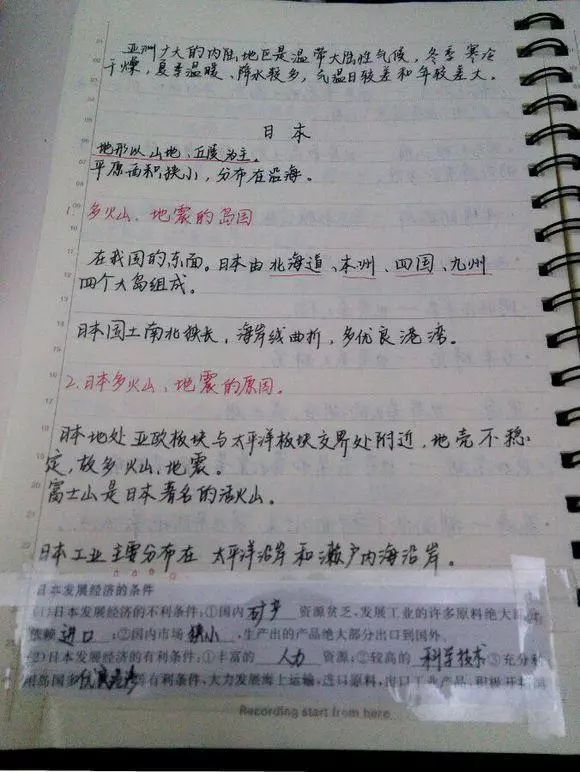 亚洲广大的内陆地区是温带大陆性气候，冬季寒冷
干燥，夏季温暖、降水较多，气温日较差和年较差大。
日本
地形以山地、丘陵为主。
平原面积狭小，分布在沿海。
1. 多火山、地震的岛国
在我国的东面。日本由北海道、本州、四国、九州
四个大岛组成。
日本国土南北狭长，海岸线曲折，多优良港湾。
2.日本多火山、地震的原因。
日本地处亚欧板块与太平洋板块交界处附近，地壳不稳
定，故多火山、地震。
富士山是日本著名的活火山。
日本工业主要分布在太平洋沿岸和濑户内海沿岸。
日本发展经济的条件
(1)日本发展经济的不利条件:①国内矿产资源贫乏,发展工业的许多原料绝大部分
依赖进口;②国内市场狭小,生产出的产品绝大部分出口到国外。
(2)日本发展经济的有利条件:①丰富的人力资源;②较高的科学技术③充分利
用岛国多优良港湾有利条件,大力发展海上运输,进口原料,出口工业产品,积极开拓国
Recording start from here